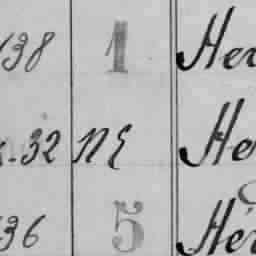 138 1 Her
.32 NE He
36 5 Hér